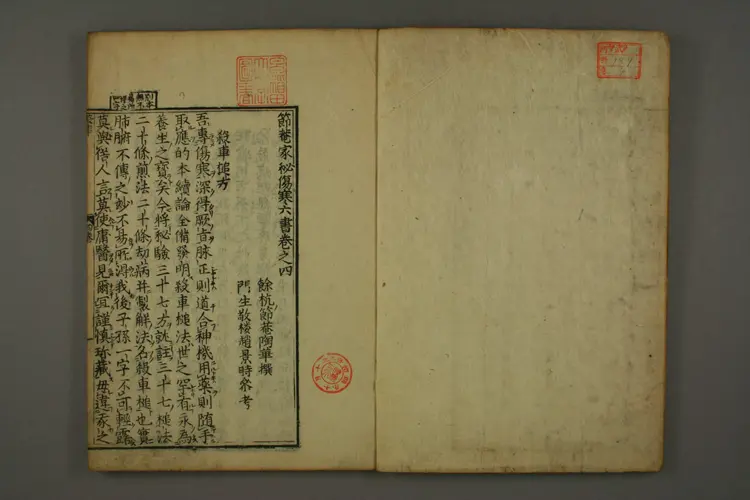 節菴家秘傷寒六書卷之四
餘杭節菴陶華撰
門生敬楼趙景時叅考
殺車槌方
吾專傷寒深得厥旨脉正則道合神機用藥則随手
取應的本續論全備發明殺車槌法世之罕有永為
養生之寶矣今將秘驗三十七方就註三十七槌法
二十條煎法二十條刼病并製解法名殺車槌也實
肺腑不傳之妙不易所淂我後子孫一字不可輕露
莫與俗人言莫使庸醫見爾宜謹慎珍藏毋違家之